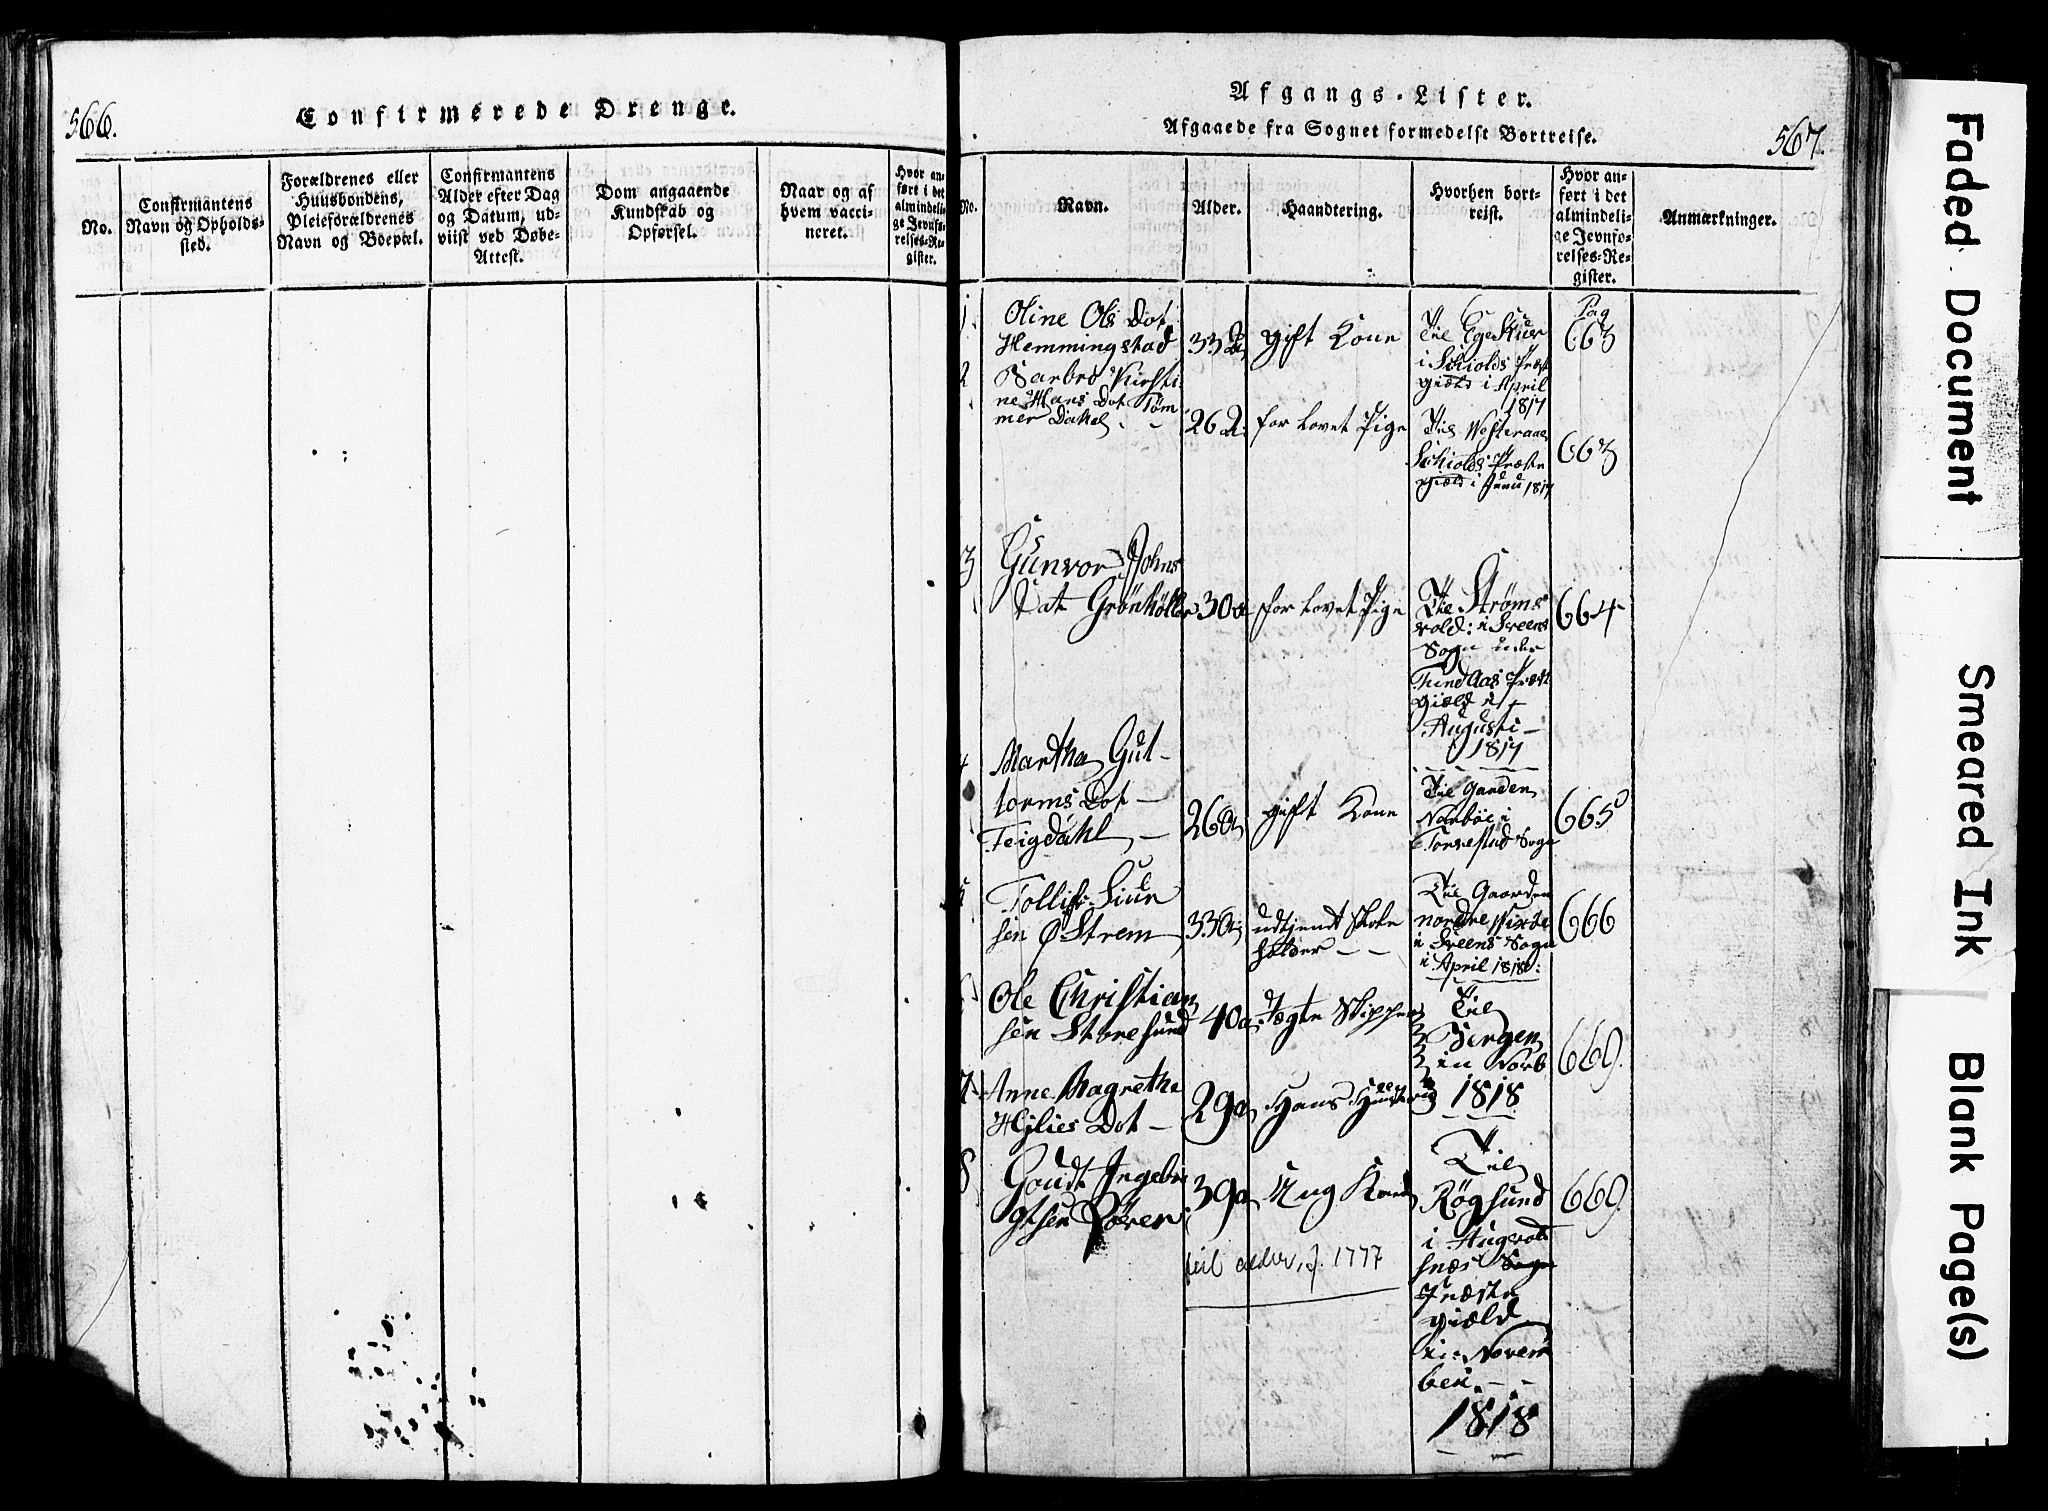 566.
Confirmerede Drenge.
No.
Confirmantens
Navn og Opholds-
sted.
Forældrenes eller
Huusbondens,
Pleieforældrenes
Navn og Boepæl.
Confirmantens
Alder efter Dag
og Datum, ud-
viist ved Døbe-
Attest.
Dom angaaende
Kundskab og
Opførsel.
Naar og af
hvem vacci-
neret.
Hvor an-
ført i det
almindeli-
ge Jevnfø-
relses-Re-
gister.
Afgangs-Lister.
Afgaaede fra Sognet formedelst Bortreise.
567.
No.
Navn.
Alder.
Haandtering.
Hvorhen bort-
reist.
Hvor an-
ført i det
almindeli-
ge Jevnfø-
relses-Re-
gister.
Anmærkninger.
1.
Oline Ols Dot
Hemmingstad
33
gift Kone
Til
i Schiolds Præst
giæld i April
1817
Pag
663
2
Barbro Kirsti
ne Hans Dot Tøm
mer Dahel
26
for lovet Pige
Til
Schiolds Præste
giæld i Junii 1817
663
3
Gunvor Johns
Dat Grønhøller
30
for lovet Pige
Til Strøms
vold: i Sveens
Sogn under
Præst
giæld i
Augusti
1817
664
4
Martha Gut-
torms Dot
Feigdahl
26
gift Kone
Til Gaarden
Norbøe i
Torvestad Sogn
665
5
Siur
sen Østrem
33
udtjent Skole
holder
Til Gaarden
nordre
i Sveens Sogn
i April 1818:
666
Ole Christian
sen Storesund
40
Jægte Skipper
Til
Bergen
in
1818
669.
7
Anne Magrethe
Hylies Dot
29
Hans
8
Goudt Ingebri
gtsen
39
Ung Karl
Til
Røgsund
i Augvolds
næs Sogn
Præste
giæld
i Novem
ber
1818
669.
feil alder, f. 1777
Faded Document
Smeared Ink
Blank Page(s)